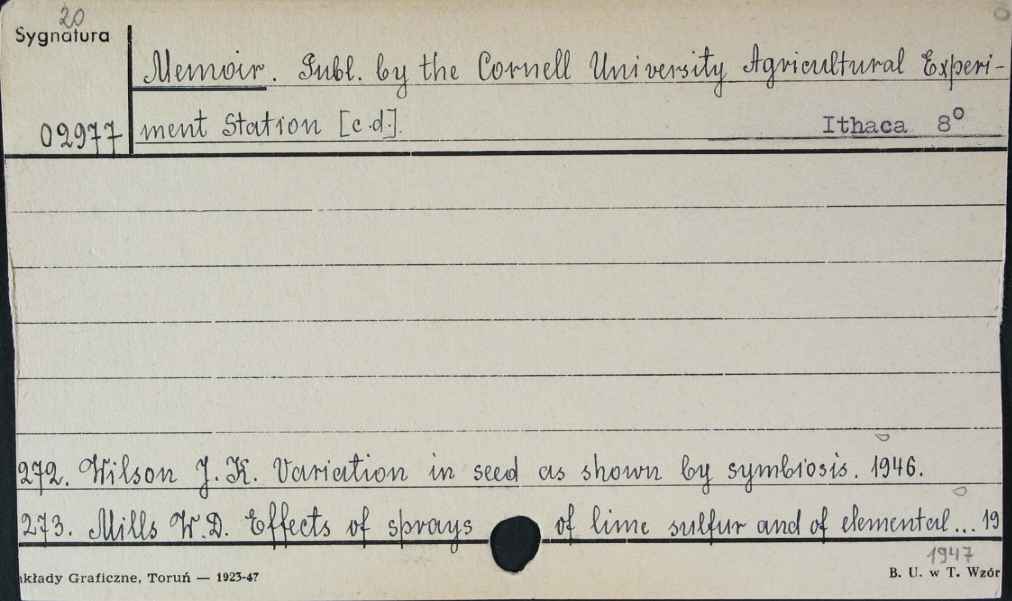 20
Sygnatura
Memoir. Publ. by the Cornell University Agricultural Experi-
02977 ment Station [c.d.]. Ithaca 8°
272. Wilson J. K. Variation in seed as shown by symbiosis. 1946.
273. Mills W. D. Effects of sprays of lime sulfur and of elemental... 19
1947
akłady Graficzne, Toruń — 1923-47 B. U. w T. Wzór